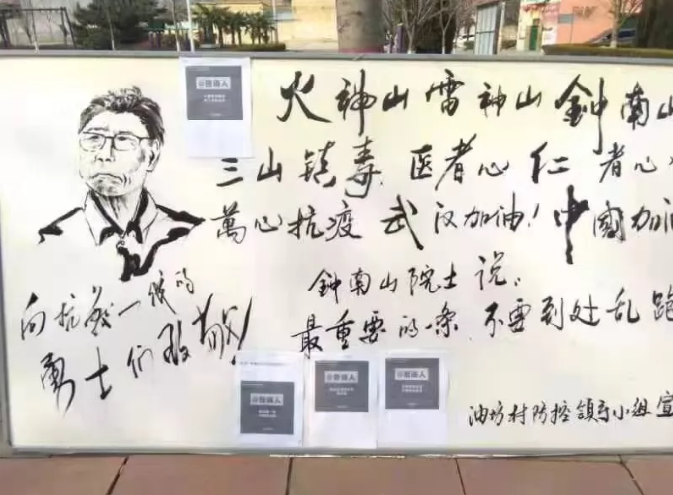 火神山雷神山 鈡南山
三山镇毒 医者心 仁者心
萬心抗疫 武汉加油！中國加油
鈡南山院士说：
最重要的一条 不要到处乱跑
油坊村防控领导小组宣
向抗疫一线的
勇士们致敬！